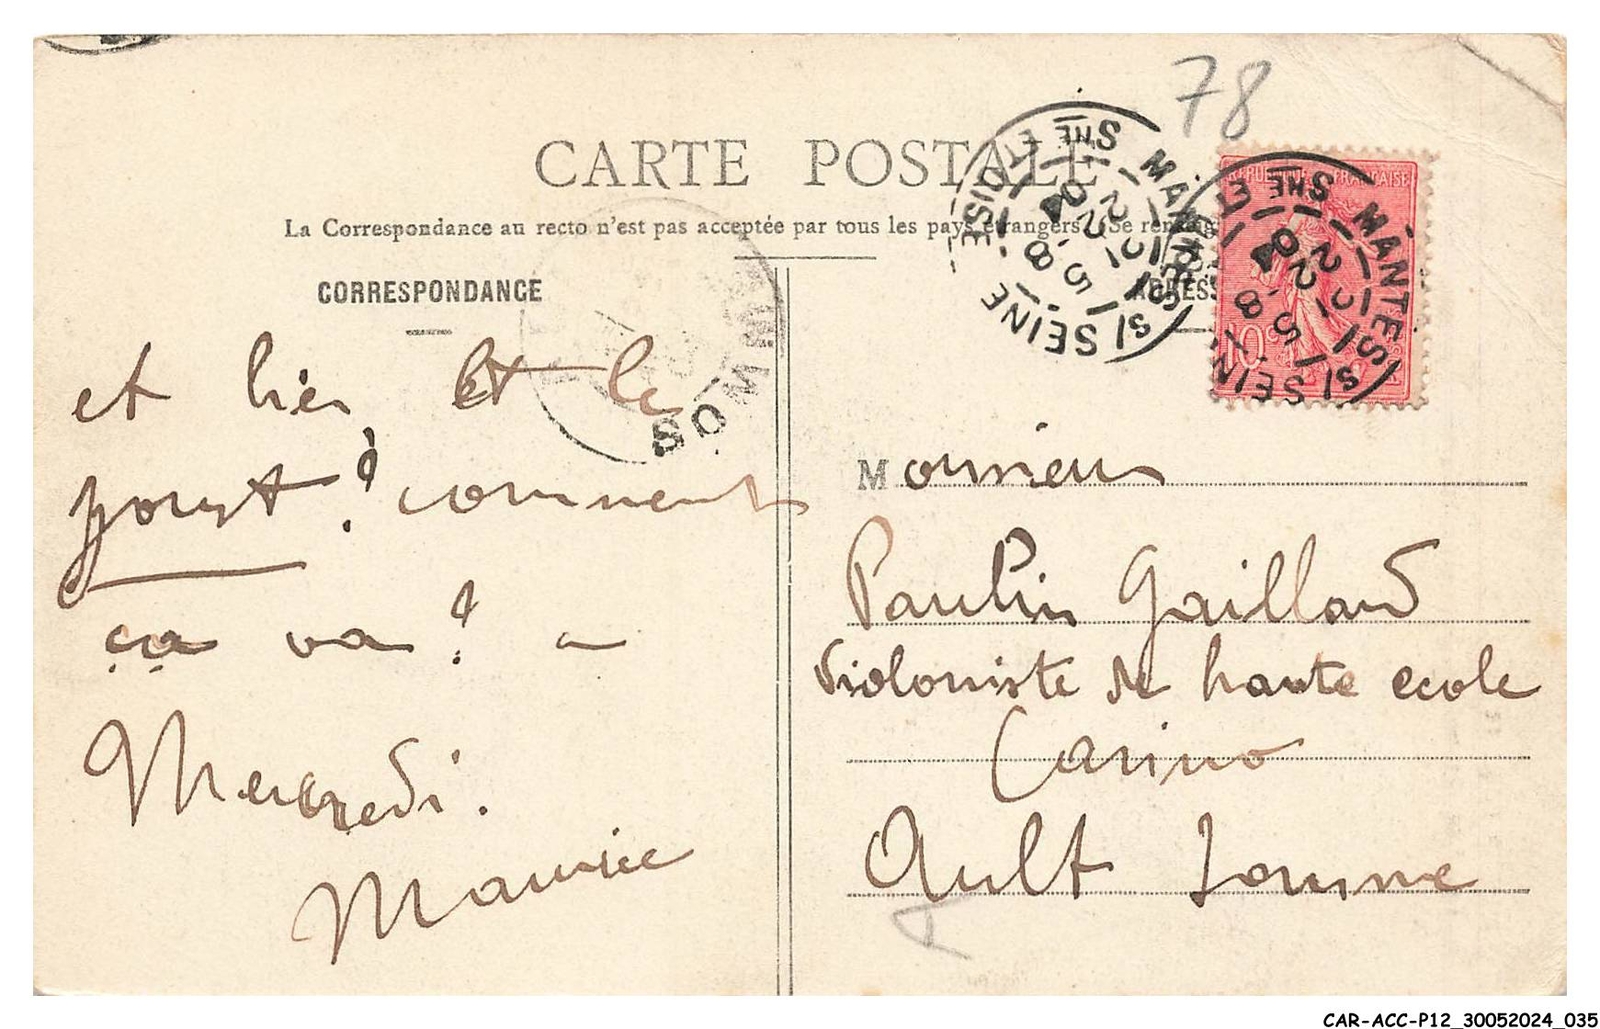 78
CARTE POSTALE
La Correspondance au recto n'est pas acceptée par tous les pays étrangers. (Se
CORRESPONDANCE
MANTES S/ SEINE
SNE ET OISE
22 5-8 04
RÉPUBLIQUE FRANÇAISE
10
SOMME
et hier et le
yourst? comment
ça va? –
Mercredi.
Maurice
Monsieur
Paulin Gaillard
Violoniste de haute ecole
Casino
Ault Somme
CAR-ACC-P12_30052024_035